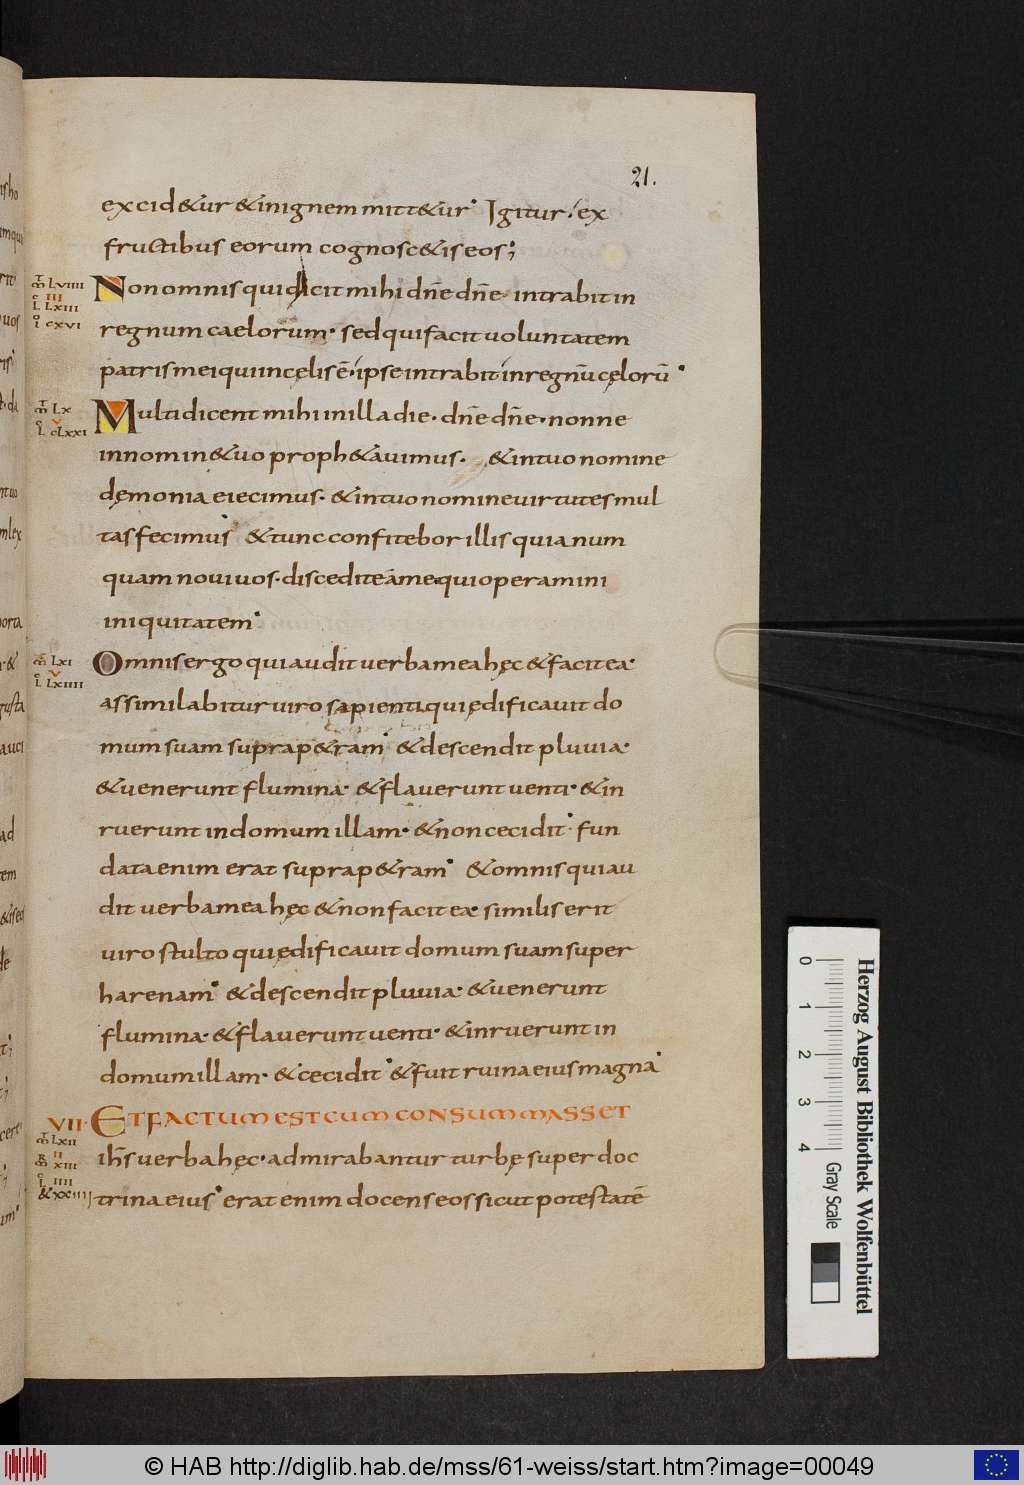 21.
excid&ur &inignem mitt&ur Igitur ex
fructibus eorum cognosc&is eos;
Non omnis qui dicit mihi dn̄e dn̄e intrabit in
regnum caelorum· sed qui facit uoluntatem
patris mei qui in cęlis ē· ipse intrabit in regnū cęlorū·
Multi dicent mihi in illa die· dn̄e dn̄e· nonne
in nomin& uo proph&auimus· & in tuo nomine
dęmonia eiecimus· & in tuo nomine uirtutes mul
tas fecimus· & tunc confitebor illis quia num
quam noui uos· discedite á me qui operamini
iniquitatem·
Omnis ergo qui audit uerba mea hęc & facit ea·
assimilabitur uiro sapienti qui ędificauit do
mum suam supra p&ram· & descendit pluuia·
& uenerunt flumina· & flauerunt uenti· & in
ruerunt in domum illam· & non cecidit· fun
data enim erat supra p&ram· & omnis qui au
dit uerba mea hęc & non facit ea· similis erit
uiro stulto qui ędificauit domum suam super
harenam· & descendit pluuia· & uenerunt
flumina· & flauerunt uenti· & inruerunt in
domum illam· & cecidit· & fuit ruina eius magna·
VII· ET FACTUM EST CUM CONSUMMASSET
ih̄s uerba hęc· admirabantur turbę super doc
trina eius· erat enim docens eos sicut potestatē
LVIIII
III
L LXIII
I CXVI
LX
V
L CLXXI
LXI
V
L LXIIII
LXII
II
XIII
IIII
& XXIIII
0 1 2 3 4
Herzog August Bibliothek Wolfenbüttel
Gray Scale
© HAB http://diglib.hab.de/mss/61-weiss/start.htm?image=00049